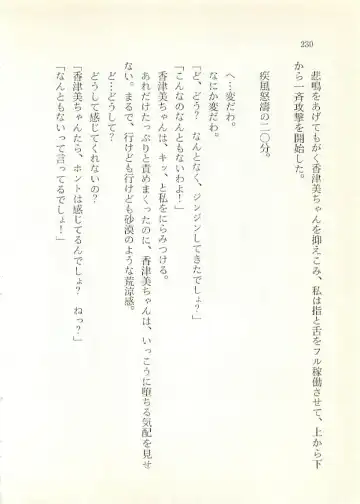 230
悲鳴をあげてもがく香津美ちゃんを抑えこみ、私は指と舌をフル稼働させて、上から下
から一斉攻撃を開始した。
疾風怒濤の二〇分。
へ…変だわ。
なにか変だわ。
「ど、どう？　なんとなく、ジンジンしてきたでしょ？」
「こんなのなんともないわよ！」
香津美ちゃんは、キッ、と私をにらみつける。
あれだけたっぷりと責めまくったのに、香津美ちゃんは、いっこうに堕ちる気配を見せ
ない。まるで、行けども行けども砂漠のような荒涼感。
ど…どうして？
どうして感じてくれないの？
「香津美ちゃんたら、ホントは感じてるんでしょ？　ねっ？」
「なんともないって言ってるでしょ！」